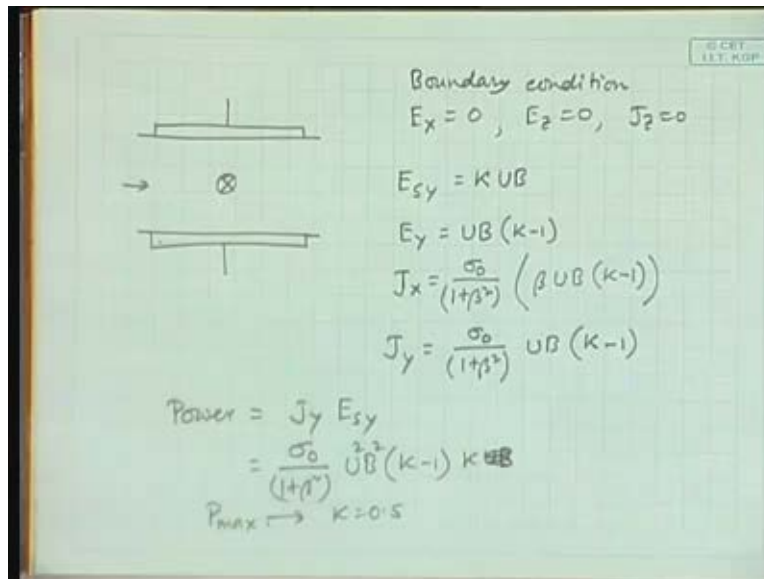 © CET
I.I.T. KGP
Boundary condition
Ex = 0 , Ez = 0, Jz = 0
Esy = K UB
Ey = UB (K-1)
Jx = σ0/(1+β²) (β UB (K-1))
Jy = σ0/(1+β²) UB (K-1)
Power = Jy Esy
= σ0/(1+β²) U²B² (K-1) K
Pmax → K = 0.5